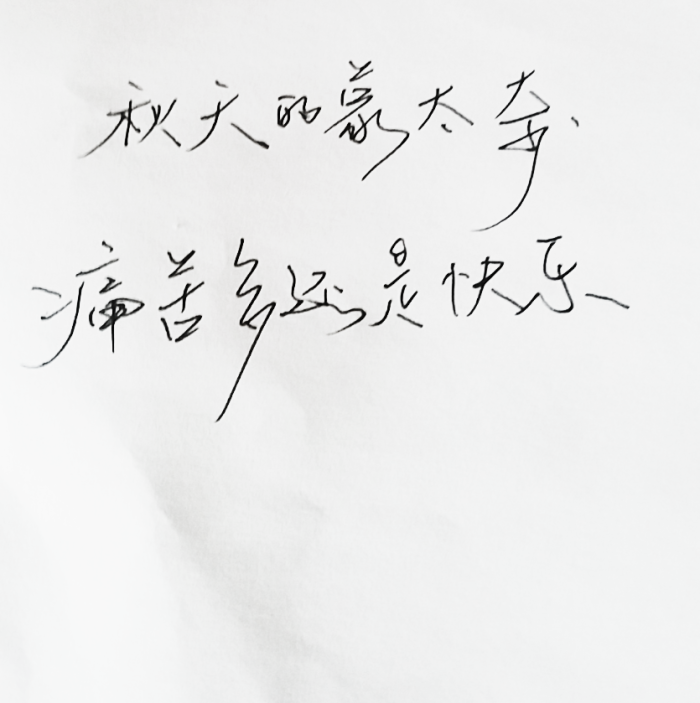 秋天的蒙太奇
痛苦多还是快乐